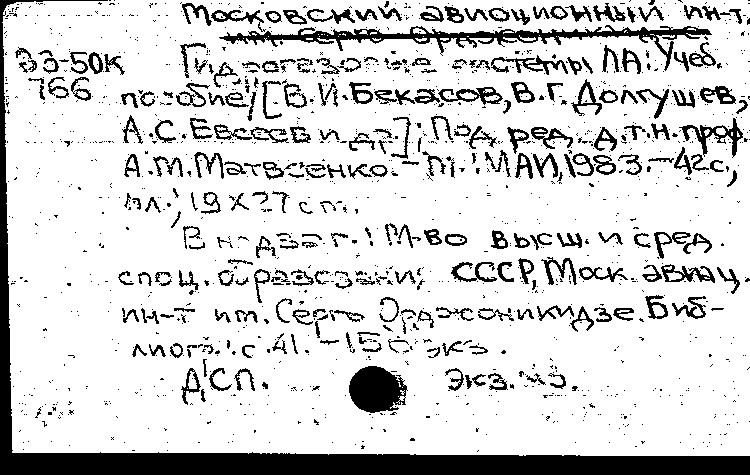 Московский авиационный ин-т.
им. Серго Орджоникидзе
ЭЭ-50К Гидрогазовые системы ЛА: Учеб.
766 пособие/[В.И.Бекасов, В.Г. Долгушев,
А.С.Евсеев и др.]; Под ред. д.т.н. проф.
А.М.Матвеенко.- М.: МАИ,1983.-42с.,
ил.; 19 X 27 cm.
В надзаг.: М-во высш. и сред.
спец. образования СССР, Моск. авиац.
ин-т им. Серго Орджоникидзе. Биб-
лиогр.: с.41. -150 экз.
ДСП. Экз.